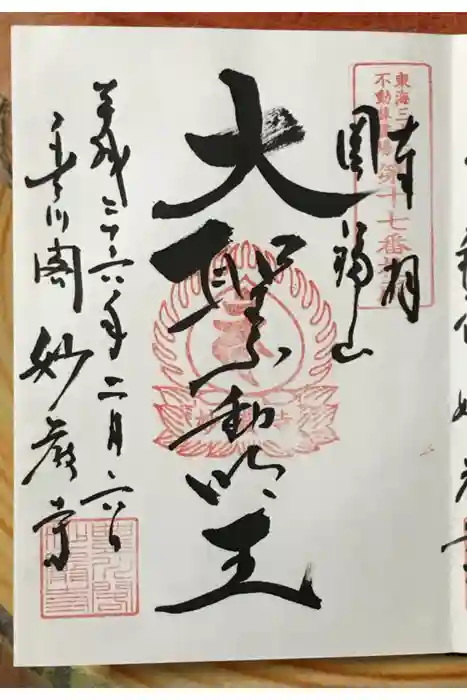 東海三十六
不動尊霊場
第十七番札所
奉拝
圓福山
大聖不動明王
平成二十六年二月六日
豊川閣 妙厳寺